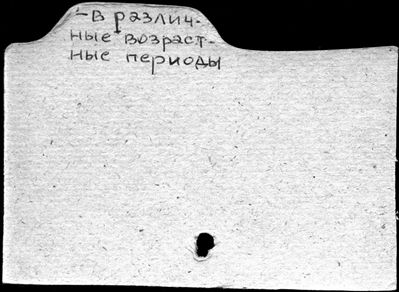 – в различ-
ные возраст-
ные периоды